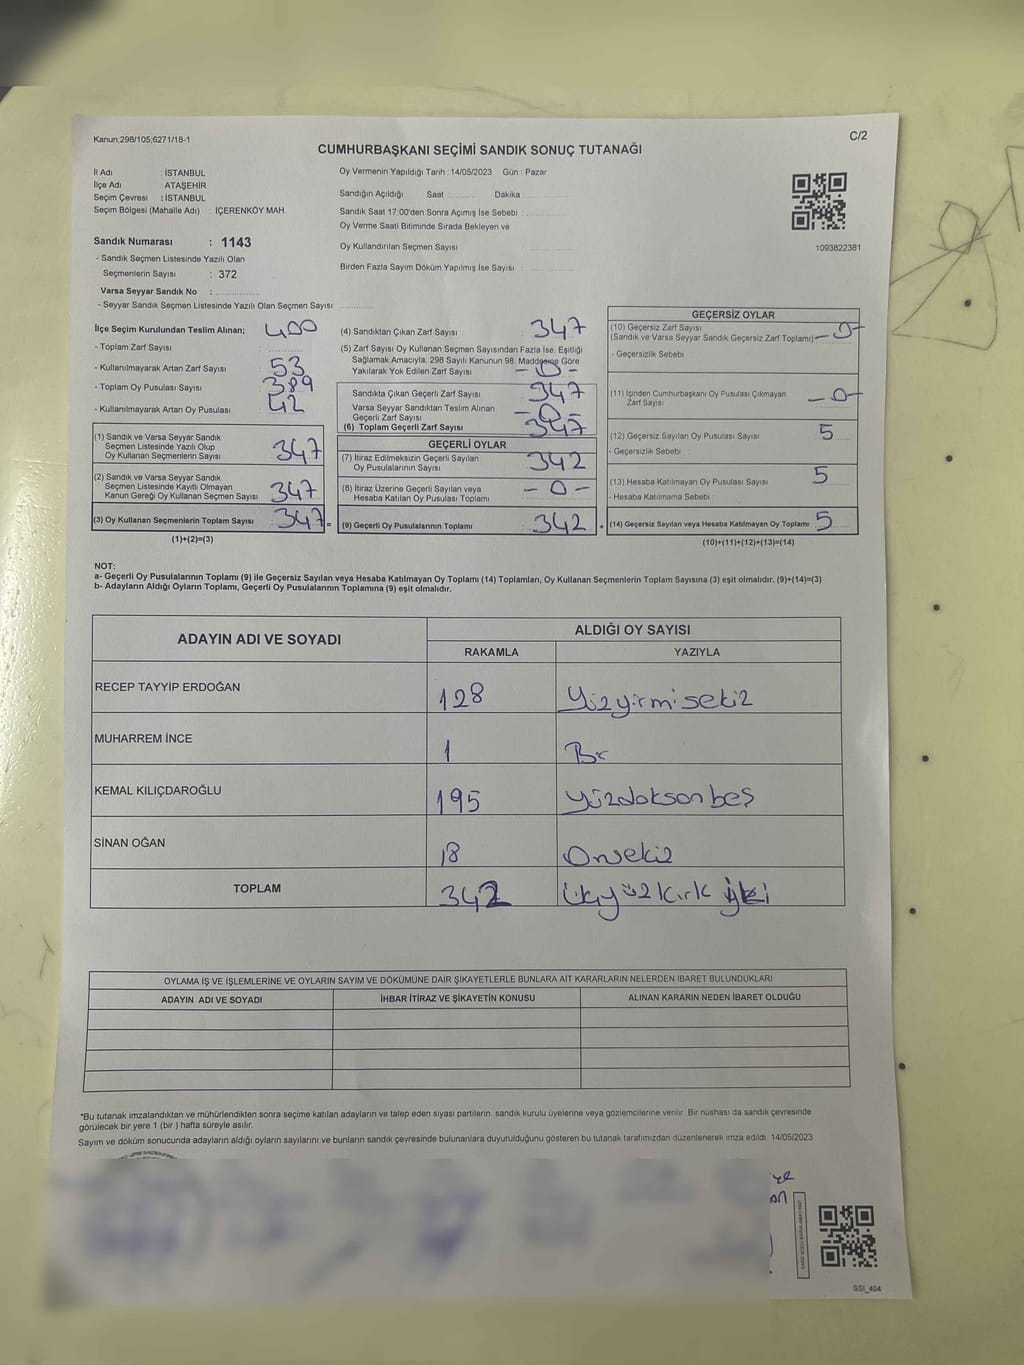 Kanun;298/105;6271/18-1
C/2
CUMHURBAŞKANI SEÇİMİ SANDIK SONUÇ TUTANAĞI
İl Adı : İSTANBUL
İlçe Adı : ATAŞEHİR
Seçim Çevresi : İSTANBUL
Seçim Bölgesi (Mahalle Adı) : İÇERENKÖY MAH.
Sandık Numarası : 1143
- Sandık Seçmen Listesinde Yazılı Olan
Seçmenlerin Sayısı : 372
Varsa Seyyar Sandık No :
- Seyyar Sandık Seçmen Listesinde Yazılı Olan Seçmen Sayısı:
Oy Vermenin Yapıldığı Tarih : 14/05/2023 Gün : Pazar
Sandığın Açıldığı Saat Dakika
Sandık Saat 17:00'den Sonra Açımış İse Sebebi :
Oy Verme Saati Bitiminde Sırada Bekleyen ve
Oy Kullandırılan Seçmen Sayısı
Birden Fazla Sayım Döküm Yapılmış İse Sayısı :
1093822381
İlçe Seçim Kurulundan Teslim Alınan; 400
- Toplam Zarf Sayısı
- Kullanılmayarak Artan Zarf Sayısı 53
- Toplam Oy Pusulası Sayısı 389
- Kullanılmayarak Artan Oy Pusulası 42
(1) Sandık ve Varsa Seyyar Sandık
Seçmen Listesinde Yazılı Olup
Oy Kullanan Seçmenlerin Sayısı 347
(2) Sandık ve Varsa Seyyar Sandık
Seçmen Listesinde Kayıtlı Olmayan
Kanun Gereği Oy Kullanan Seçmen Sayısı 347
(3) Oy Kullanan Seçmenlerin Toplam Sayısı 347 =
(1)+(2)=(3)
(4) Sandıktan Çıkan Zarf Sayısı : 347
(5) Zarf Sayısı Oy Kullanan Seçmen Sayısından Fazla İse, Eşitliği
Sağlamak Amacıyla, 298 Sayılı Kanunun 98. Maddesine Göre
Yakılarak Yok Edilen Zarf Sayısı - 0 -
Sandıkta Çıkan Geçerli Zarf Sayısı 347
Varsa Seyyar Sandıktan Teslim Alınan
Geçerli Zarf Sayısı - 0 -
(6) Toplam Geçerli Zarf Sayısı 347
GEÇERLİ OYLAR
(7) İtiraz Edilmeksizin Geçerli Sayılan
Oy Pusulalarının Sayısı 342
(8) İtiraz Üzerine Geçerli Sayılan veya
Hesaba Katılan Oy Pusulası Toplamı - 0 -
(9) Geçerli Oy Pusulalarının Toplamı 342 +
GEÇERSİZ OYLAR
(10) Geçersiz Zarf Sayısı
(Sandık ve Varsa Seyyar Sandık Geçersiz Zarf Toplamı) - 0 -
- Geçersizlik Sebebi :
(11) İçinden Cumhurbaşkanı Oy Pusulası Çıkmayan
Zarf Sayısı - 0 -
(12) Geçersiz Sayılan Oy Pusulası Sayısı 5
- Geçersizlik Sebebi :
(13) Hesaba Katılmayan Oy Pusulası Sayısı 5
- Hesaba Katılmama Sebebi :
(14) Geçersiz Sayılan veya Hesaba Katılmayan Oy Toplamı 5
(10)+(11)+(12)+(13)=(14)
NOT:
a- Geçerli Oy Pusulalarının Toplamı (9) ile Geçersiz Sayılan veya Hesaba Katılmayan Oy Toplamı (14) Toplamları, Oy Kullanan Seçmenlerin Toplam Sayısına (3) eşit olmalıdır. (9)+(14)=(3)
b- Adayların Aldığı Oyların Toplamı, Geçerli Oy Pusulalarının Toplamına (9) eşit olmalıdır.
ADAYIN ADI VE SOYADI
ALDIĞI OY SAYISI
RAKAMLA YAZIYLA
RECEP TAYYİP ERDOĞAN 128 Yüzyirmisekiz
MUHARREM İNCE 1 Bir
KEMAL KILIÇDAROĞLU 195 yüzdoksanbeş
SİNAN OĞAN 18 Onsekiz
TOPLAM 342 Üçyüzkırk iki
OYLAMA İŞ VE İŞLEMLERİNE VE OYLARIN SAYIM VE DÖKÜMÜNE DAİR ŞİKAYETLERLE BUNLARA AİT KARARLARIN NELERDEN İBARET BULUNDUKLARI
ADAYIN ADI VE SOYADI İHBAR İTİRAZ VE ŞİKAYETİN KONUSU ALINAN KARARIN NEDEN İBARET OLDUĞU
*Bu tutanak imzalandıktan ve mühürlendikten sonra seçime katılan adayların ve talep eden siyasi partilerin sandık kurulu üyelerine veya gözlemcilerine verilir. Bir nüshası da sandık çevresinde
görülecek bir yere 1 (bir ) hafta süreyle asılır.
Sayım ve döküm sonucunda adayların aldığı oyların sayılarını ve bunların sandık çevresinde bulunanlara duyurulduğunu gösteren bu tutanak tarafımızdan düzenlenerek imza edildi. 14/05/2023
SSI_404